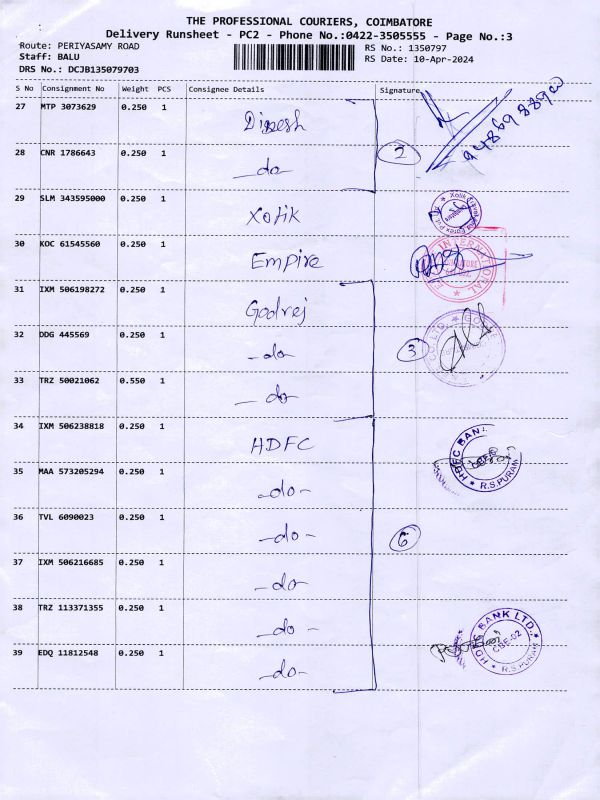 THE PROFESSIONAL COURIERS, COIMBATORE
Delivery Runsheet - PC2 - Phone No.:0422-3505555 - Page No.:3
Route: PERIYASAMY ROAD RS No.: 1350797
Staff: BALU RS Date: 10-Apr-2024
DRS No.: DCJB135079703
S No Consignment No Weight PCS Consignee Details Signature
27 MTP 3073629 0.250 1 Dinesh
28 CNR 1786643 0.250 1 -do- 2
29 SLM 343595000 0.250 1 Xotik
30 KOC 61545560 0.250 1 Empire
31 IXM 506198272 0.250 1 Godrej
32 DDG 445569 0.250 1 -do- 3
33 TRZ 50021062 0.550 1 -do-
34 IXM 506238818 0.250 1 HDFC HDFC BANK R.S.PURAM
35 MAA 573205294 0.250 1 -do-
36 TVL 6090023 0.250 1 -do- 6
37 IXM 506216685 0.250 1 -do-
38 TRZ 113371355 0.250 1 -do- HDFC BANK LTD. CBE-02 R.S.PURAM
39 EDQ 11812548 0.250 1 -do-